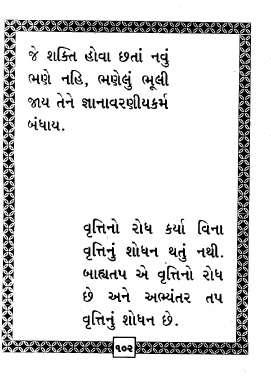 જે શક્તિ હોવા છતાં નવું
ભણે નહિ, ભણેલું ભૂલી
જાય તેને જ્ઞાનાવરણીયકર્મ
બંધાય.
વૃત્તિનો રોધ કર્યા વિના
વૃત્તિનું શોધન થતું નથી.
બાહ્યતપ એ વૃત્તિનો રોધ
છે અને અભ્યંતર તપ
વૃત્તિનું શોધન છે.
૧૦૨